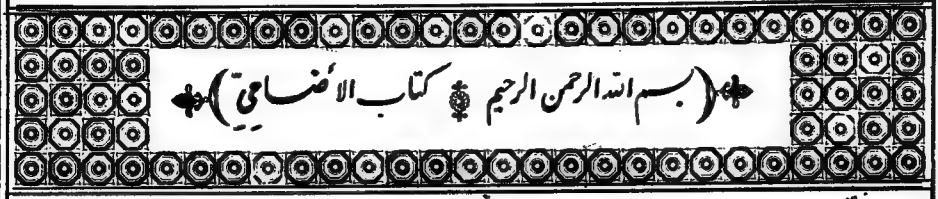 (بسم الله الرحمن الرحيم * كتاب الأضاحيّ)